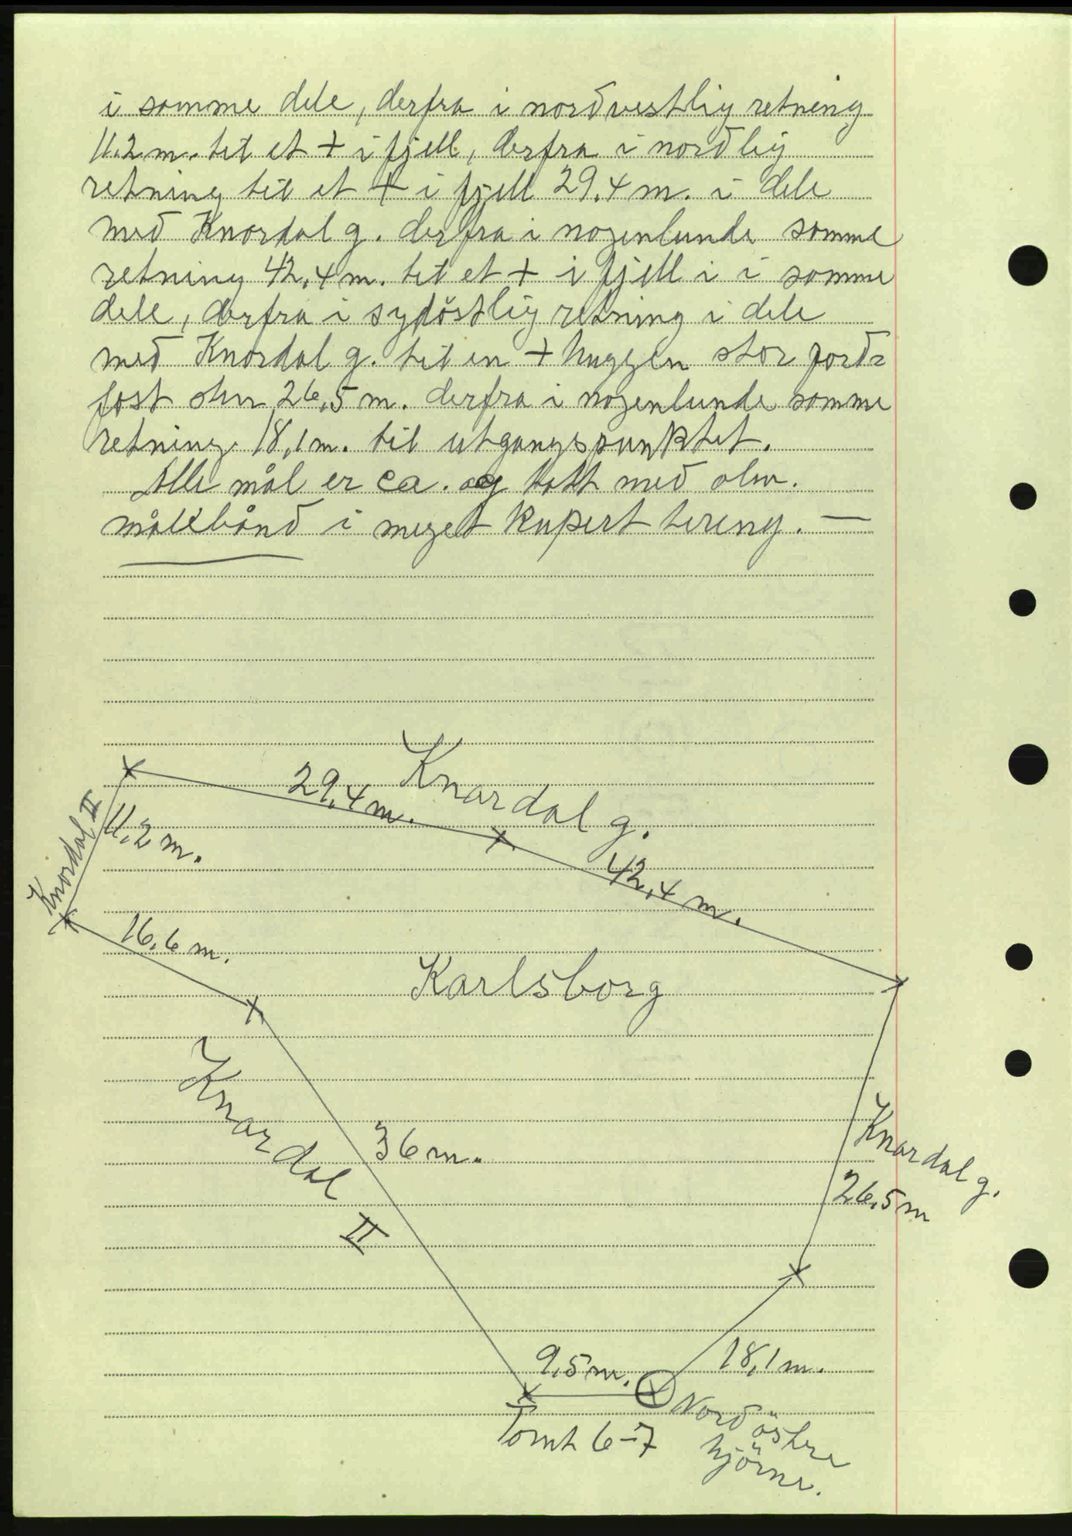 i samme dele, derfra i nordvestlig retning
11.2 m. til et + i fjell, derfra i nordlig
retning til et + i fjell 29.4 m. i dele
med Knardal g. derfra i nogenlunde samme
retning 42,4 m. til et + i fjell i i samme
dele, derfra i sydöstlig retning i dele
med Knardal g. til en + huggen stor jord-
fast sten 26,5 m. derfra i nogenlunde samme
retning 18,1 m. til utgangspunktet.
Alle mål er ca. og tatt med alm.
målebånd i meget kupert tereng. —
Knardal g.
29,4 m.
Knardal II
11,2 m.
42,4 m.
16,6 m.
Karlsborg
Knardal
II
36 m.
Knardal g.
26,5 m
9,5 m.
18,1 m.
Tomt 6-7
Nordöstre
hjörne.